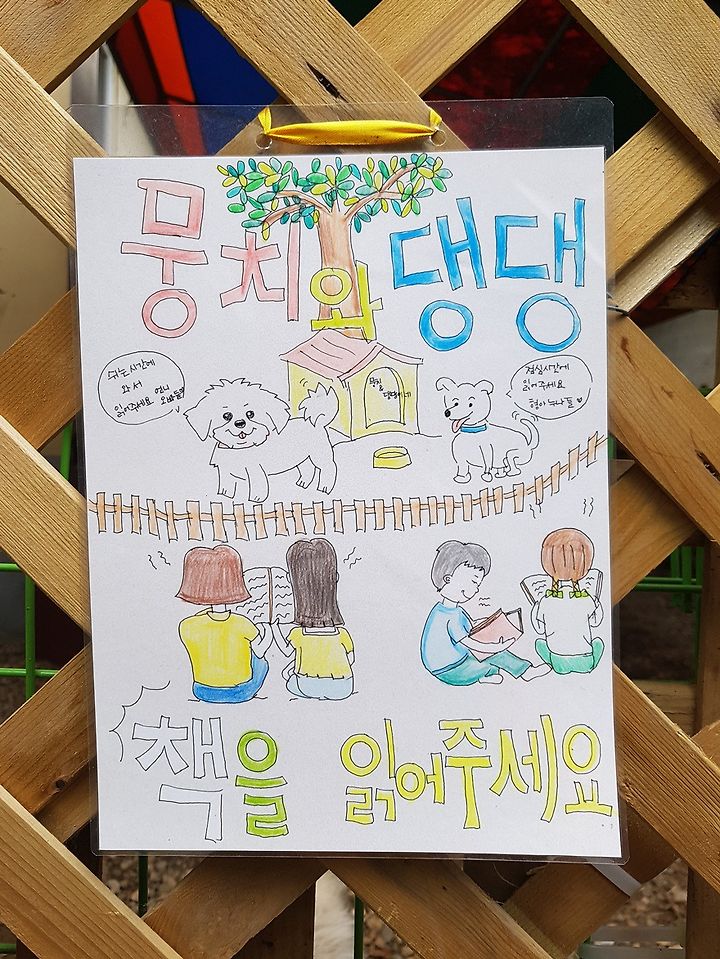 뭉치와 댕댕
쉬는시간에
와서 언니
읽어주세요 오빠들
점심시간에
읽어주세요
형아누나들
뭉치&
책을 읽어주세요